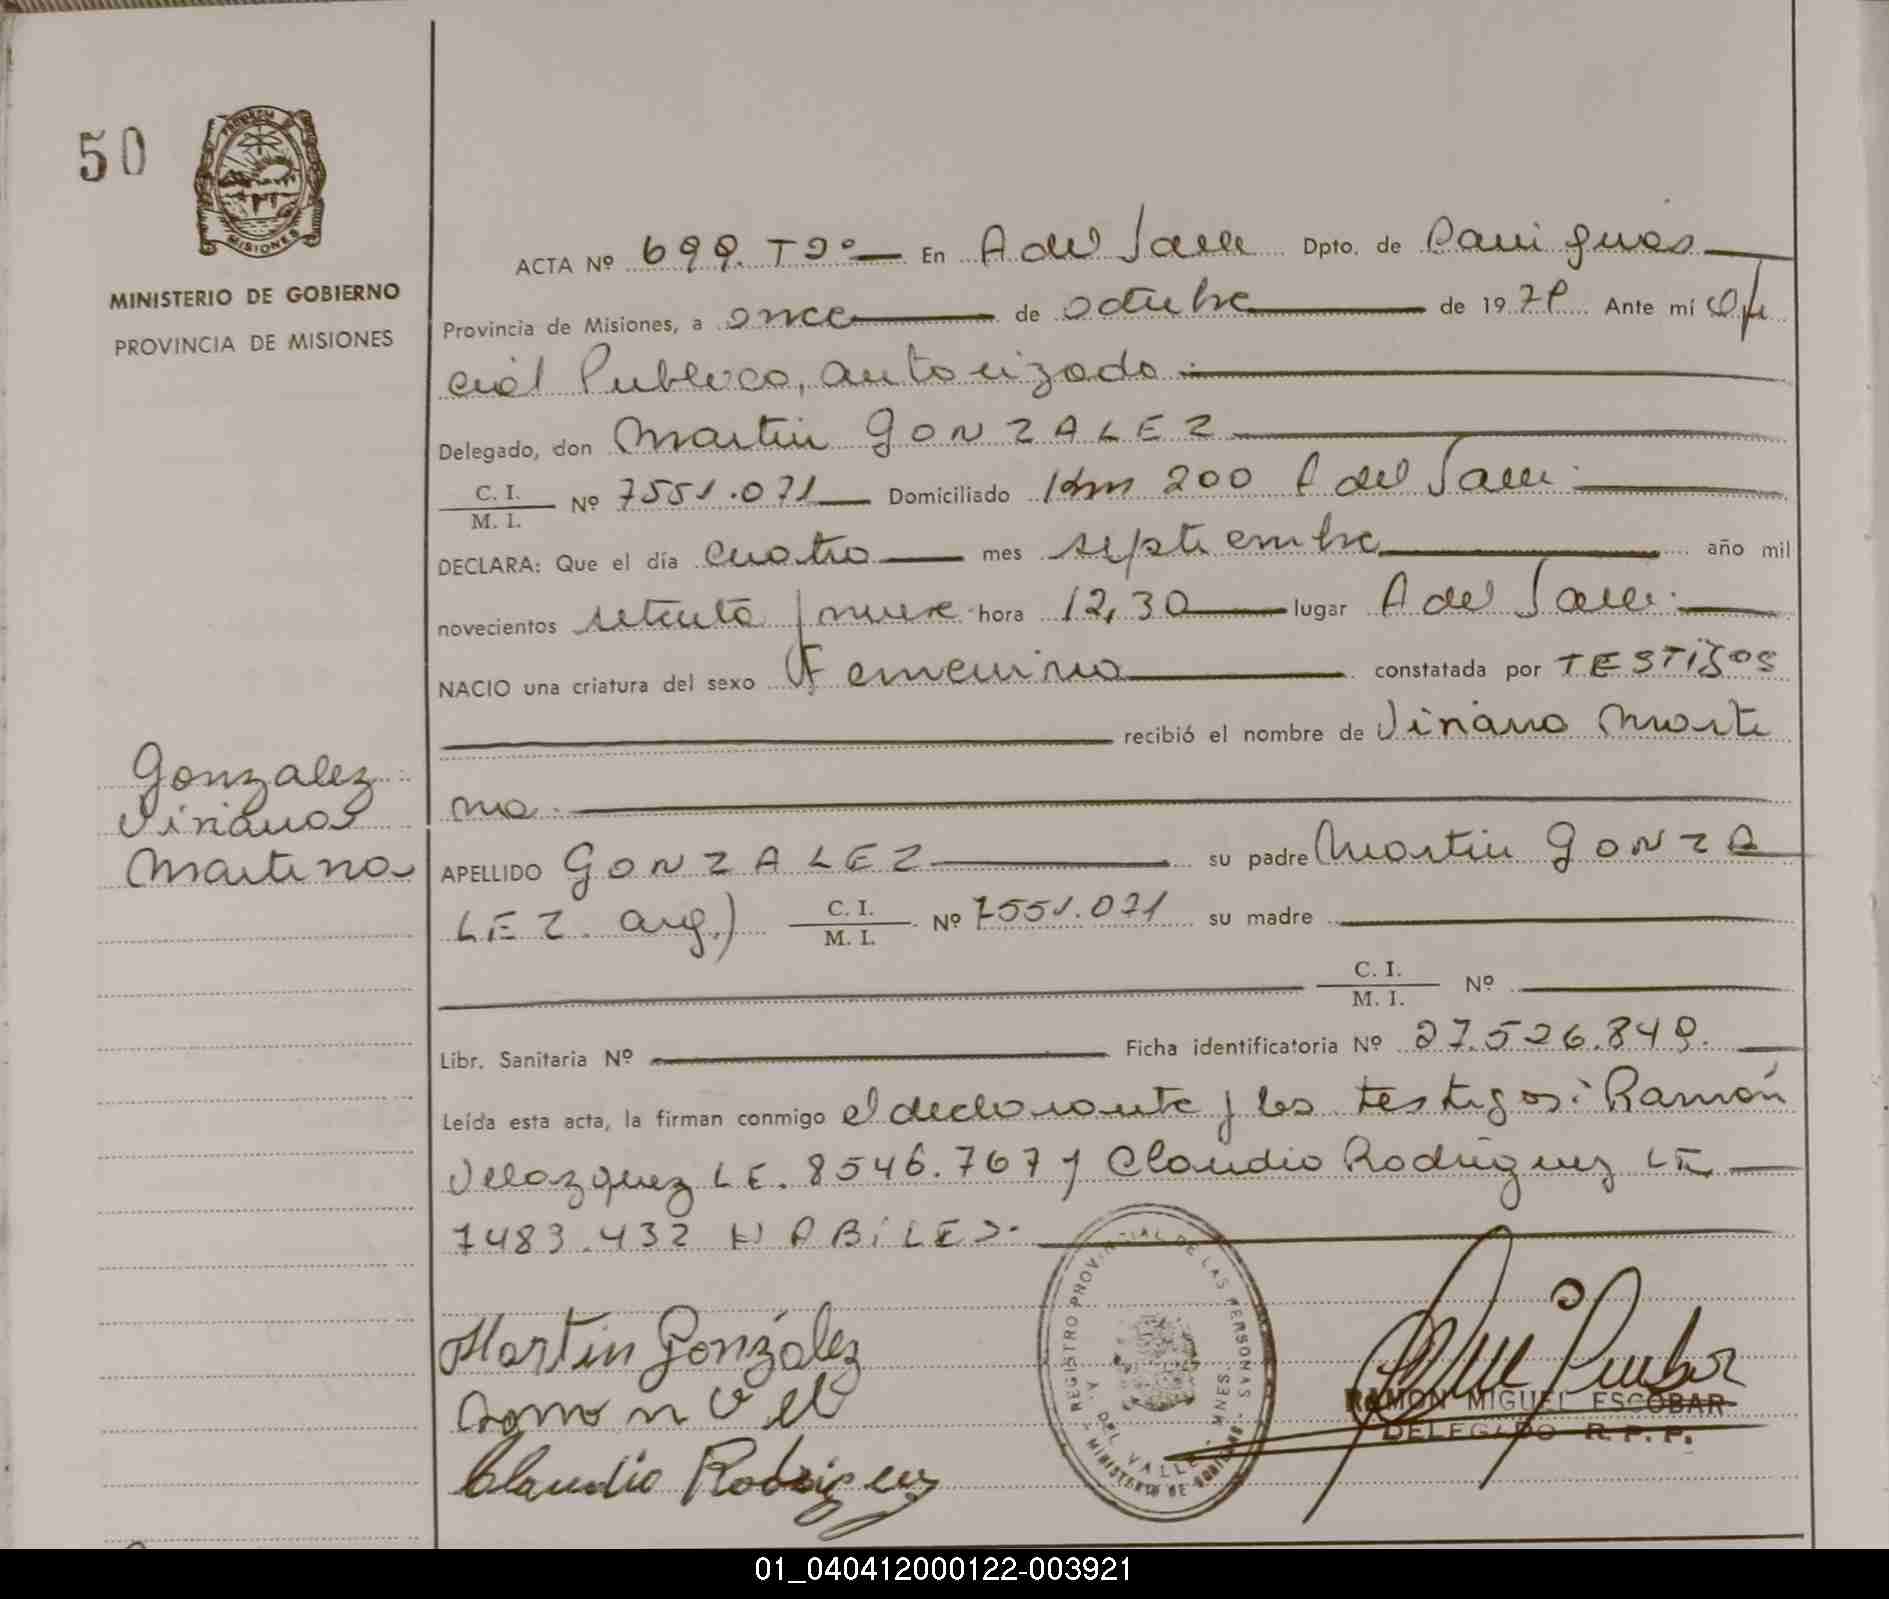 50
MISIONES
MINISTERIO DE GOBIERNO
PROVINCIA DE MISIONES
ACTA Nº 699. Tº 2º En A del Valle Dpto. de Cainguás
Provincia de Misiones, a once de octubre de 1979 Ante mí Ofi
cial Publico, autorizado
Delegado, don Martin GONZALEZ
C. I. / M. I. Nº 7551.071 Domiciliado Km 200 A del Valle
DECLARA: Que el día cuatro mes septiembre año mil
novecientos setenta y nueve hora 12,30 lugar A del Valle
NACIO una criatura del sexo Femenino constatada por TESTIGOS
recibió el nombre de Viviana Marti
na
Gonzalez
Viviana
Martina
APELLIDO GONZALEZ su padre Martin GONZA
LEZ. arg.) C. I. / M. I. Nº 7551.071 su madre
C. I. / M. I. Nº
Libr. Sanitaria Nº Ficha identificatoria Nº 27.526.849.
Leída esta acta, la firman conmigo el declarante y los testigos: Ramón
Velazquez LE. 8546.767 y Claudio Rodriguez LE
7483.432 HABILES.
Martin González
Ramon Vel
Claudio Rodriguez
REGISTRO PROVINCIAL DE LAS PERSONAS
A. DEL VALLE - MNES.
MINISTERIO DE GOBIERNO
RAMON MIGUEL ESCOBAR
DELEGADO R. P. P.
01_040412000122-003921